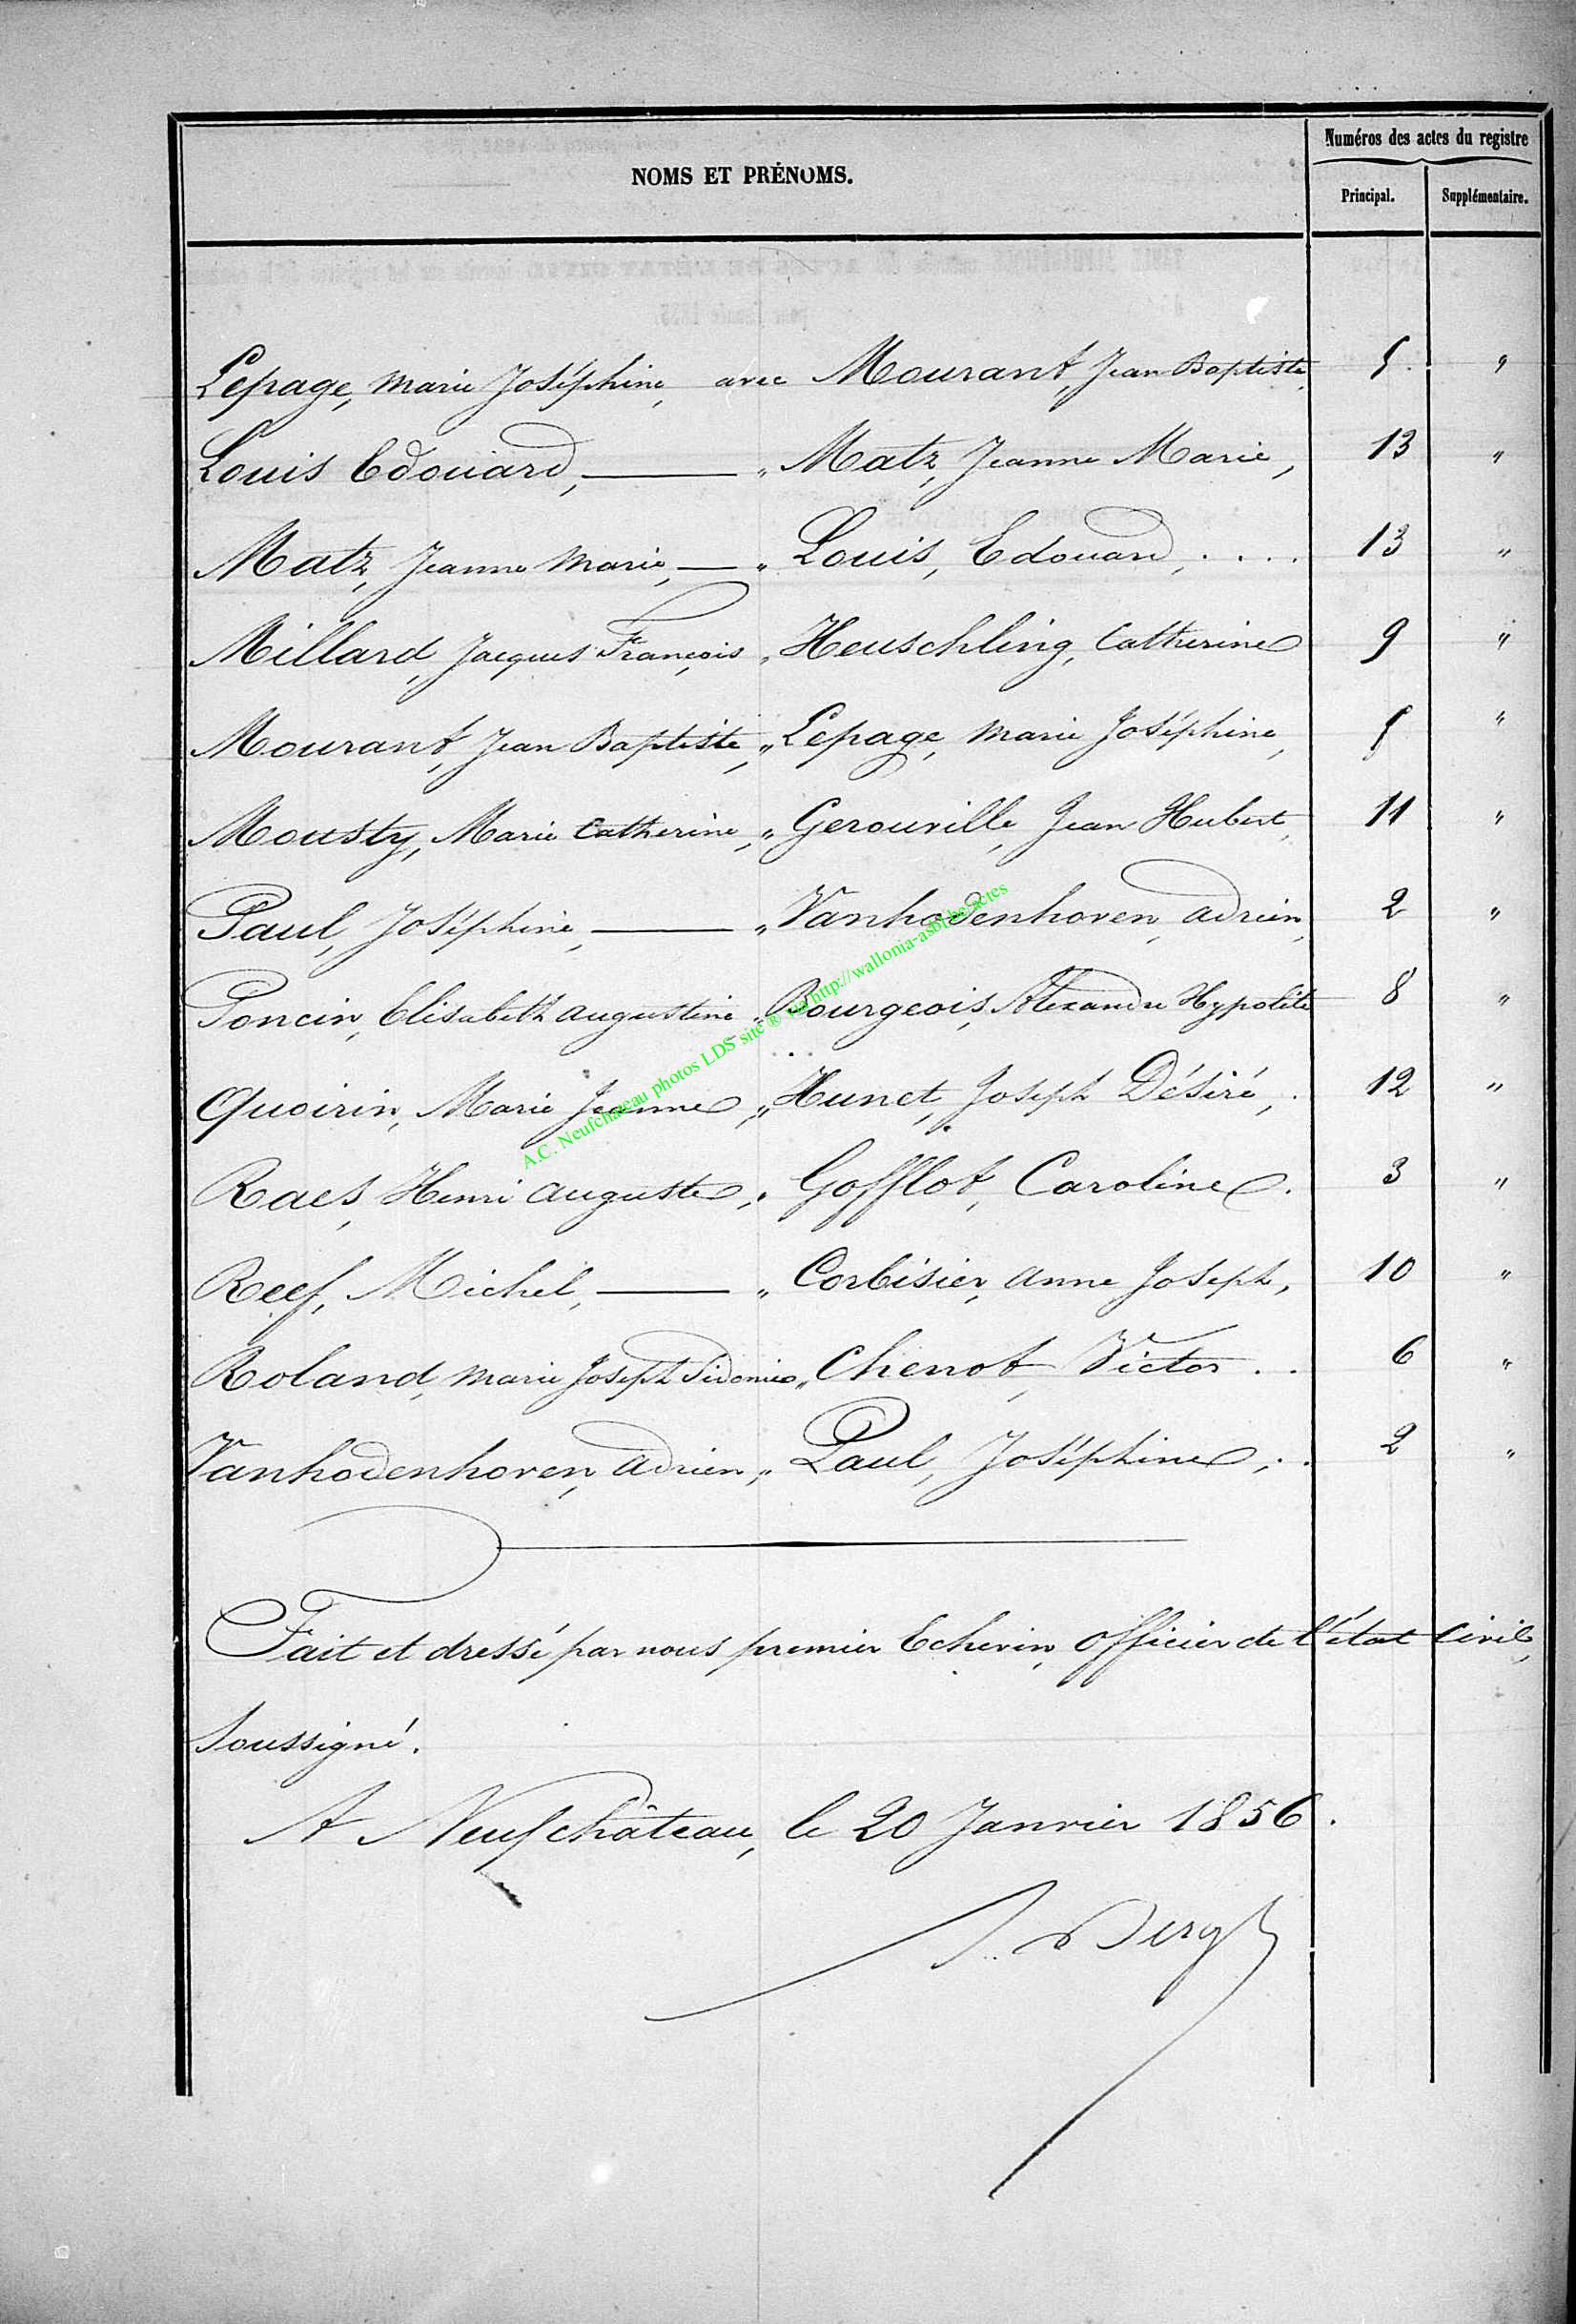 NOMS ET PRÉNOMS.
Numéros des actes du registre
Principal.
Supplémentaire.
Lepage, Marie Joséphine, avec Mourant, Jean Baptiste, 5. "
Louis Edouard, " Matz, Jeanne Marie, 13 "
Matz, Jeanne Marie, " Louis, Edouard, .... 13 "
Millard, Jacques François " Heuschling, Catherine 9 "
Mourant, Jean Baptiste, " Lepage, Marie Joséphine, 5 "
Mousty, Marie Catherine, " Gerouville, Jean Hubert, 11 "
Paul, Joséphine, " Vanhodenhoven, Adrien, 2 "
Poncin, Elisabeth Augustine " Bourgeois, Alexandre Hypolite 8 "
Quoirin, Marie Jeanne, " Hunet, Joseph Désiré, . 12 "
Raes, Henri Auguste, " Gofflot, Caroline. 3 "
Reef, Michel, " Corbisier, Anne Joseph, 10 "
Roland, Marie Joseph Sidonie " Chenot, Victor .. 6 "
Vanhodenhoven, Adrien, " Paul, Joséphine, .. 2 "
Fait et dressé par nous premier Echevin, officier de l'état civil,
soussigné.
A Neufchâteau, le 20 Janvier 1856.
A.C. Neufchateau photos LDS site ® via http://wallonia-asbl.be/actes